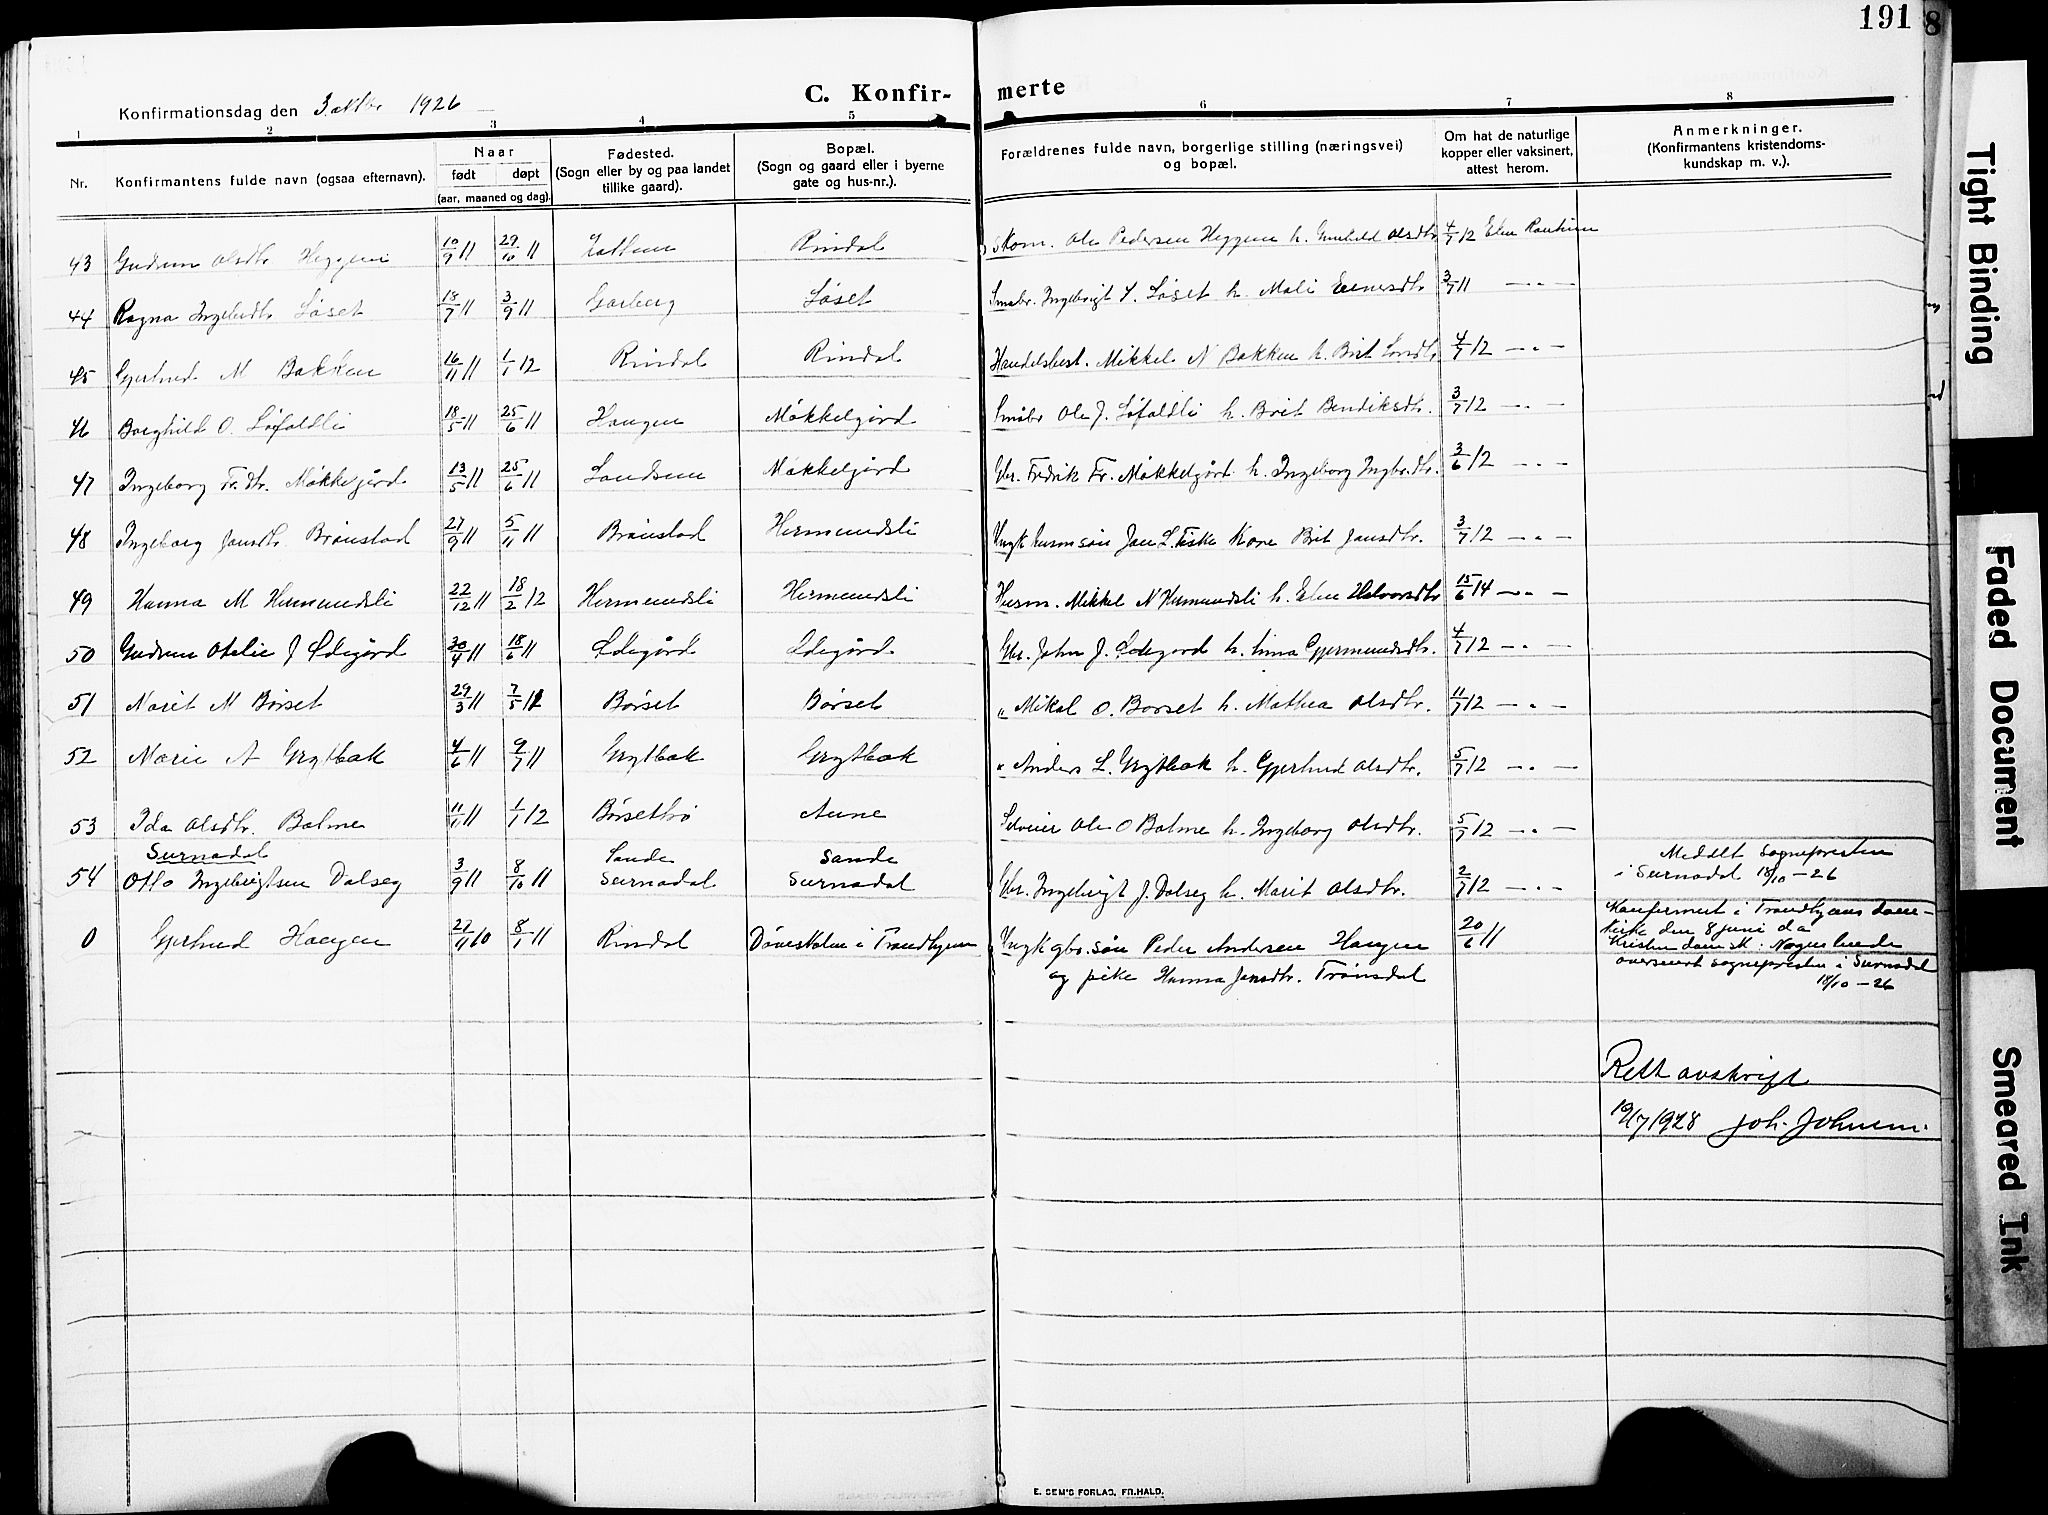 191
8
Konfirmationsdag den 3 oktbr 1926
C. Konfir-
merte
1 2 3 4 5 6 7 8
Nr.
Konfirmantens fulde navn (ogsaa efternavn).
Naar
født døpt
(aar, maaned og dag).
Fødested.
(Sogn eller by og paa landet
tillike gaard).
Bopæl.
(Sogn og gaard eller i byerne
gate og hus-nr.).
Forældrenes fulde navn, borgerlige stilling (næringsvei)
og bopæl.
Om hat de naturlige
kopper eller vaksinert,
attest herom.
Anmerkninger.
(Konfirmantens kristendoms-
kundskap m. v.).
43 Gudrun Olsdtr Heggem 10/9 11 29/10 11 Rindal Skom. Ole Pedersen Heggem h. Gunhild Olsdtr 4/7 12
44 Ragna Ingebrdtr Løset 18/7 11 3/9 11 Garberg Løset Småbr. Ingebrigt Løset h. Mali 3/7 11 — „ —
45 Gjertrud M Bakken 16/11 11 1/1 12 Rindal Rindal Handelsbest. Mikkel N Bakken h. Brit 4/7 12 — „ —
46 Borghild O. Løfaldli 18/5 11 25/6 11 Haugen Møkkelgård Småbr Ole J. Løfaldli h. Brit Bendiksdtr. 3/7 12 — „ —
47 Ingeborg Fr.dtr. Møkkelgård 13/5 11 25/6 11 Landsem Møkkelgjård Gbr. Fredrik Fr. Møkkelgård h. Ingeborg Ingbr.dtr. 3/6 12 — „ —
48 Ingeborg Jonsdtr. Brønstad 27/9 11 5/11 11 Brønstad Hermundsli Ungk husm.søn Jon L. Fiske Kone Brit Jonsdtr. 3/7 12 — „ —
49 Hanna M Hermundsli 22/12 11 18/2 12 Hermundsli Hermundsli Husm. Mikkel N Hermundsli h. Elen Halvorsdtr 15/6 14 — „ —
50 Gudrun Otelie J Ødegård 30/4 11 18/6 11 Ødegård Ødegård Gbr. John J. Ødegaard h. Gjermundsdtr. 4/7 12 — „ —
51 Marit M Børset 29/3 11 7/5 11 Børset Børset „ Mikal O. Børset h. Mathea Olsdtr. 11/7 12 — „ —
52 Marie A Grytbak 4/6 11 9/7 11 Grytbak Grytbak „ Anders L. Grytbak h. Gjertrud Olsdtr. 5/7 12 — „ —
53 Ida Olsdtr. Bolme 11/11 11 1/1 12 Børsettrø Aune Ole O Bolme h. Ingeborg Olsdtr. 5/7 12 — „ —
Surnadal Sande Sande Meddelt sognepresten
54 Otto Ingebrigtsen Dalseg 3/9 11 8/10 11 Surnadal Surnadal Gbr. Ingebrigt J. Dalseg h. Marit Olsdtr. 2/7 12 — „ — i Surnadal 18/10 – 26
0 Gjertrud Haugen 27/11 10 8/1 11 Rindal Døveskolen i Trondhjem Ungk gbr.søn Peder Andersen Haugen 20/6 11
og pike Hanna Jonsdtr. Trønsdal
Konfirmert i Trondhjems dom-
kirke den 8 juni da
Kristendomsk: Nogenlunde
oversendt sognepresten i Surnadal
18/10 – 26
Rett avskrift
19/7 1928 Joh. Johnsen.
E. SEM'S FORLAG, FR.HALD.
Tight Binding
Faded Document
Smeared Ink